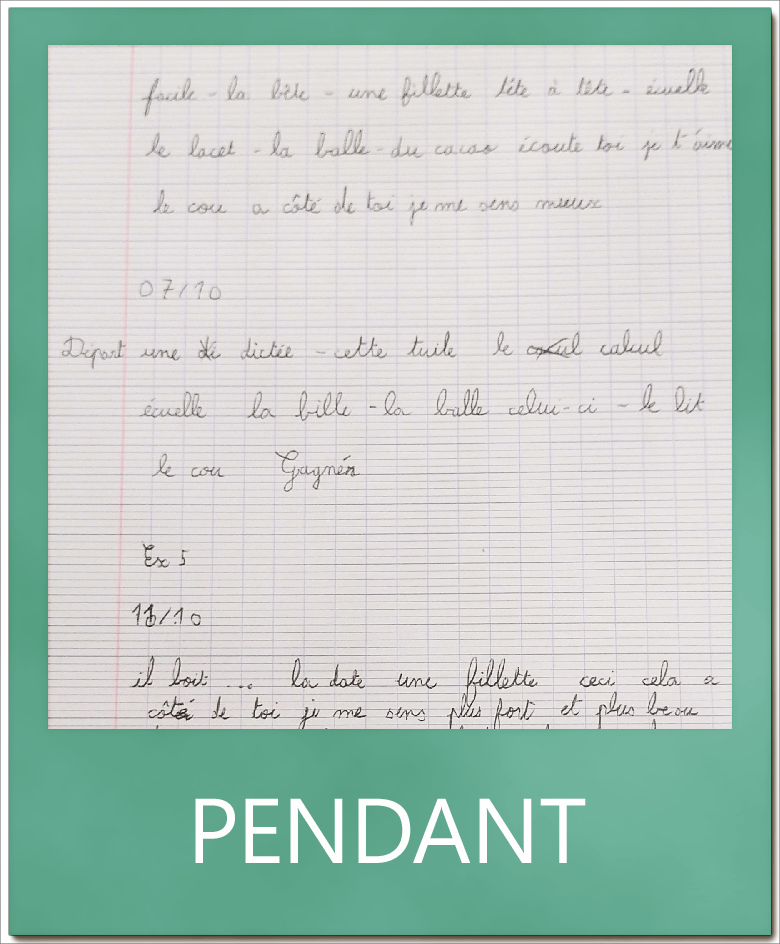 facile - la bête - une fillette tête à tête - écuelle
le lacet - la balle - du cacao écoute toi je t'aime
le cou a côté de toi je me sens mieux
07/10
Départ une dictée - cette tuile le calcul
écuelle la bille - la balle celui-ci - le lit
le cou Gagnén
Ex 5
11/10
il boit ... la date une fillette ceci cela a
côté de toi je me sens plus fort et plus beau
PENDANT